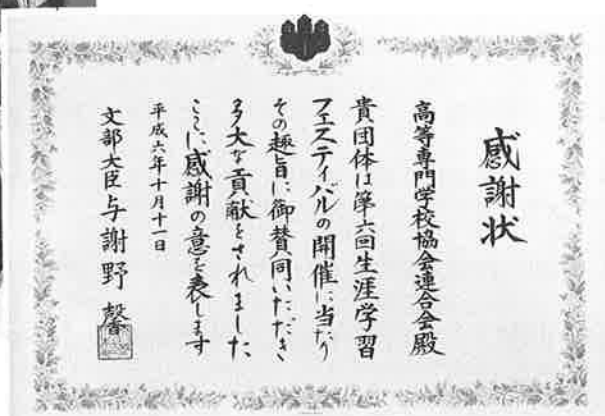 感謝状
高等専門学校協会連合会殿
貴団体は第六回生涯学習
フェスティバルの開催に当たり
その趣旨に御賛同いただき
多大な貢献をされました
ここに感謝の意を表します
平成六年十月十一日
文部大臣与謝野馨